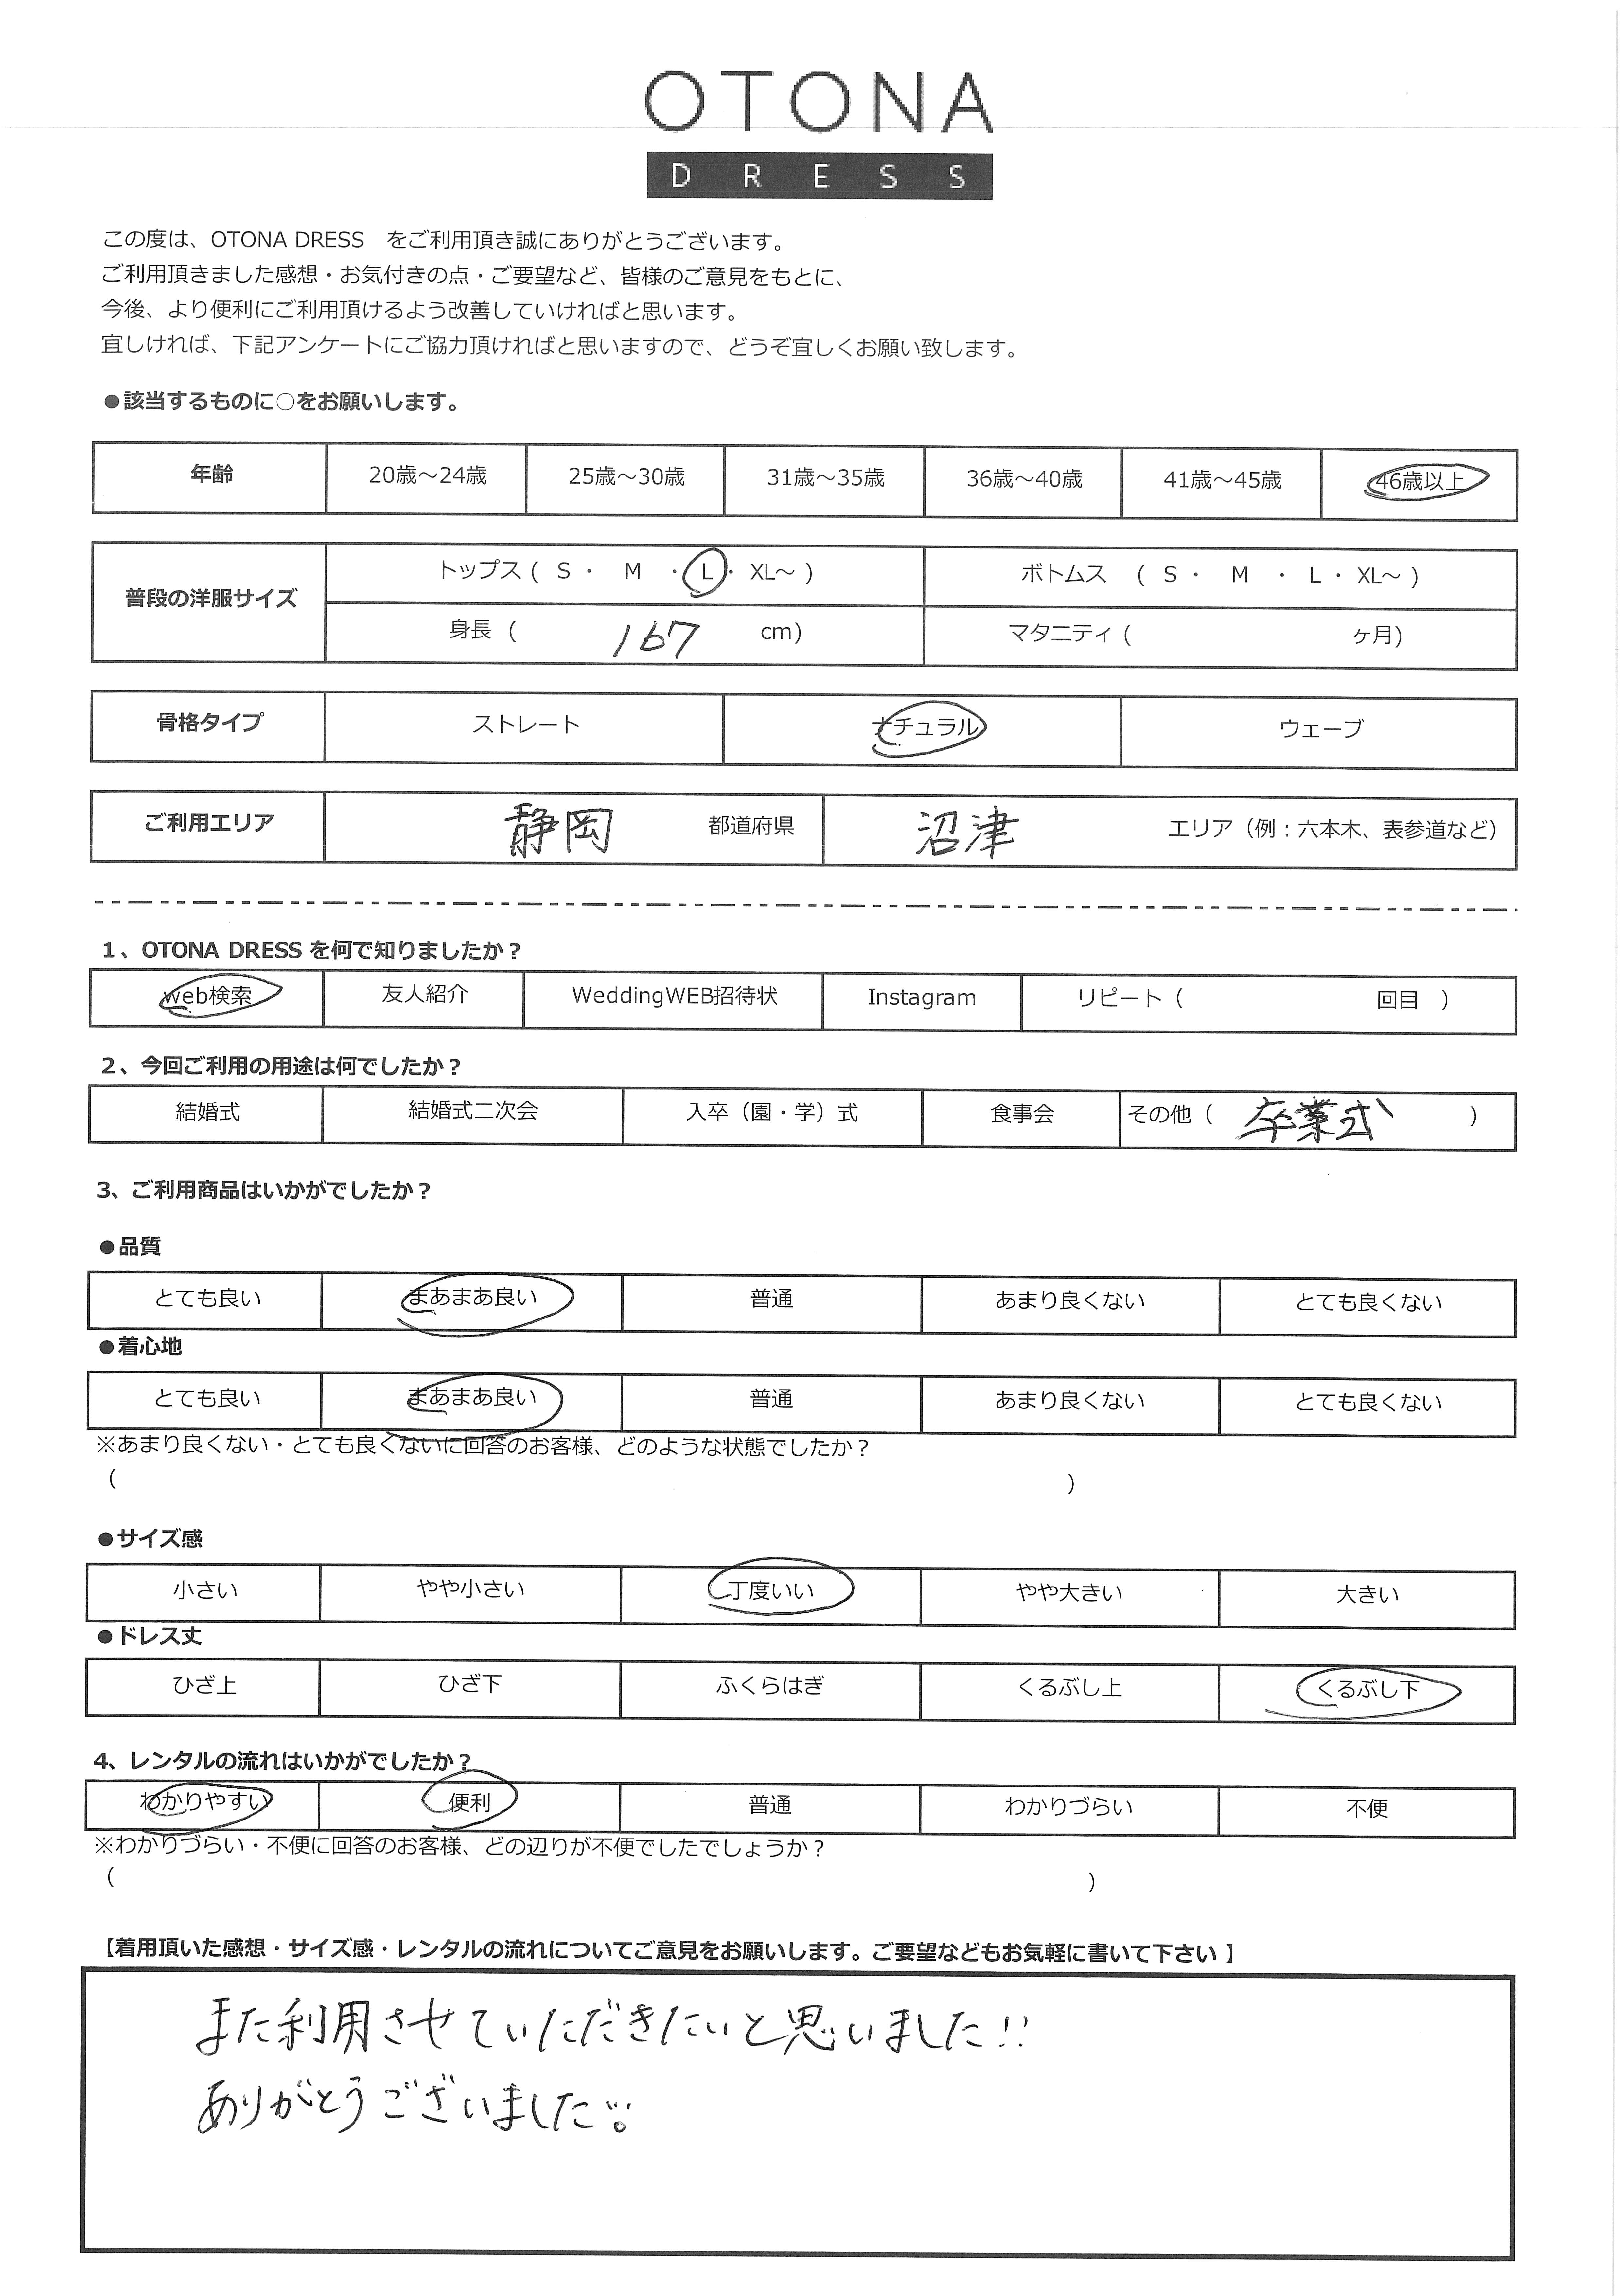 OTONA
DRESS
この度は、OTONA DRESS をご利用頂き誠にありがとうございます。
ご利用頂きました感想・お気付きの点・ご要望など、皆様のご意見をもとに、
今後、より便利にご利用頂けるよう改善していければと思います。
宜しければ、下記アンケートにご協力頂ければと思いますので、どうぞ宜しくお願い致します。
●該当するものに○をお願いします。
年齢 20歳～24歳 25歳～30歳 31歳～35歳 36歳～40歳 41歳～45歳 46歳以上
普段の洋服サイズ
トップス ( S ・ M ・ L ・ XL～ ) ボトムス ( S ・ M ・ L ・ XL～ )
身長 ( 167 cm) マタニティ ( ヶ月)
骨格タイプ ストレート ナチュラル ウェーブ
ご利用エリア 静岡 都道府県 沼津 エリア（例：六本木、表参道など）
1、OTONA DRESS を何で知りましたか？
web検索 友人紹介 WeddingWEB招待状 Instagram リピート（ 回目 ）
2、今回ご利用の用途は何でしたか？
結婚式 結婚式二次会 入卒（園・学）式 食事会 その他（ 卒業式 ）
3、ご利用商品はいかがでしたか？
●品質
とても良い まあまあ良い 普通 あまり良くない とても良くない
●着心地
とても良い まあまあ良い 普通 あまり良くない とても良くない
※あまり良くない・とても良くないに回答のお客様、どのような状態でしたか？
（ ）
●サイズ感
小さい やや小さい 丁度いい やや大きい 大きい
●ドレス丈
ひざ上 ひざ下 ふくらはぎ くるぶし上 くるぶし下
4、レンタルの流れはいかがでしたか？
わかりやすい 便利 普通 わかりづらい 不便
※わかりづらい・不便に回答のお客様、どの辺りが不便でしたでしょうか？
（ ）
【着用頂いた感想・サイズ感・レンタルの流れについてご意見をお願いします。ご要望などもお気軽に書いて下さい】
また利用させていただきたいと思いました!!
ありがとうございました。